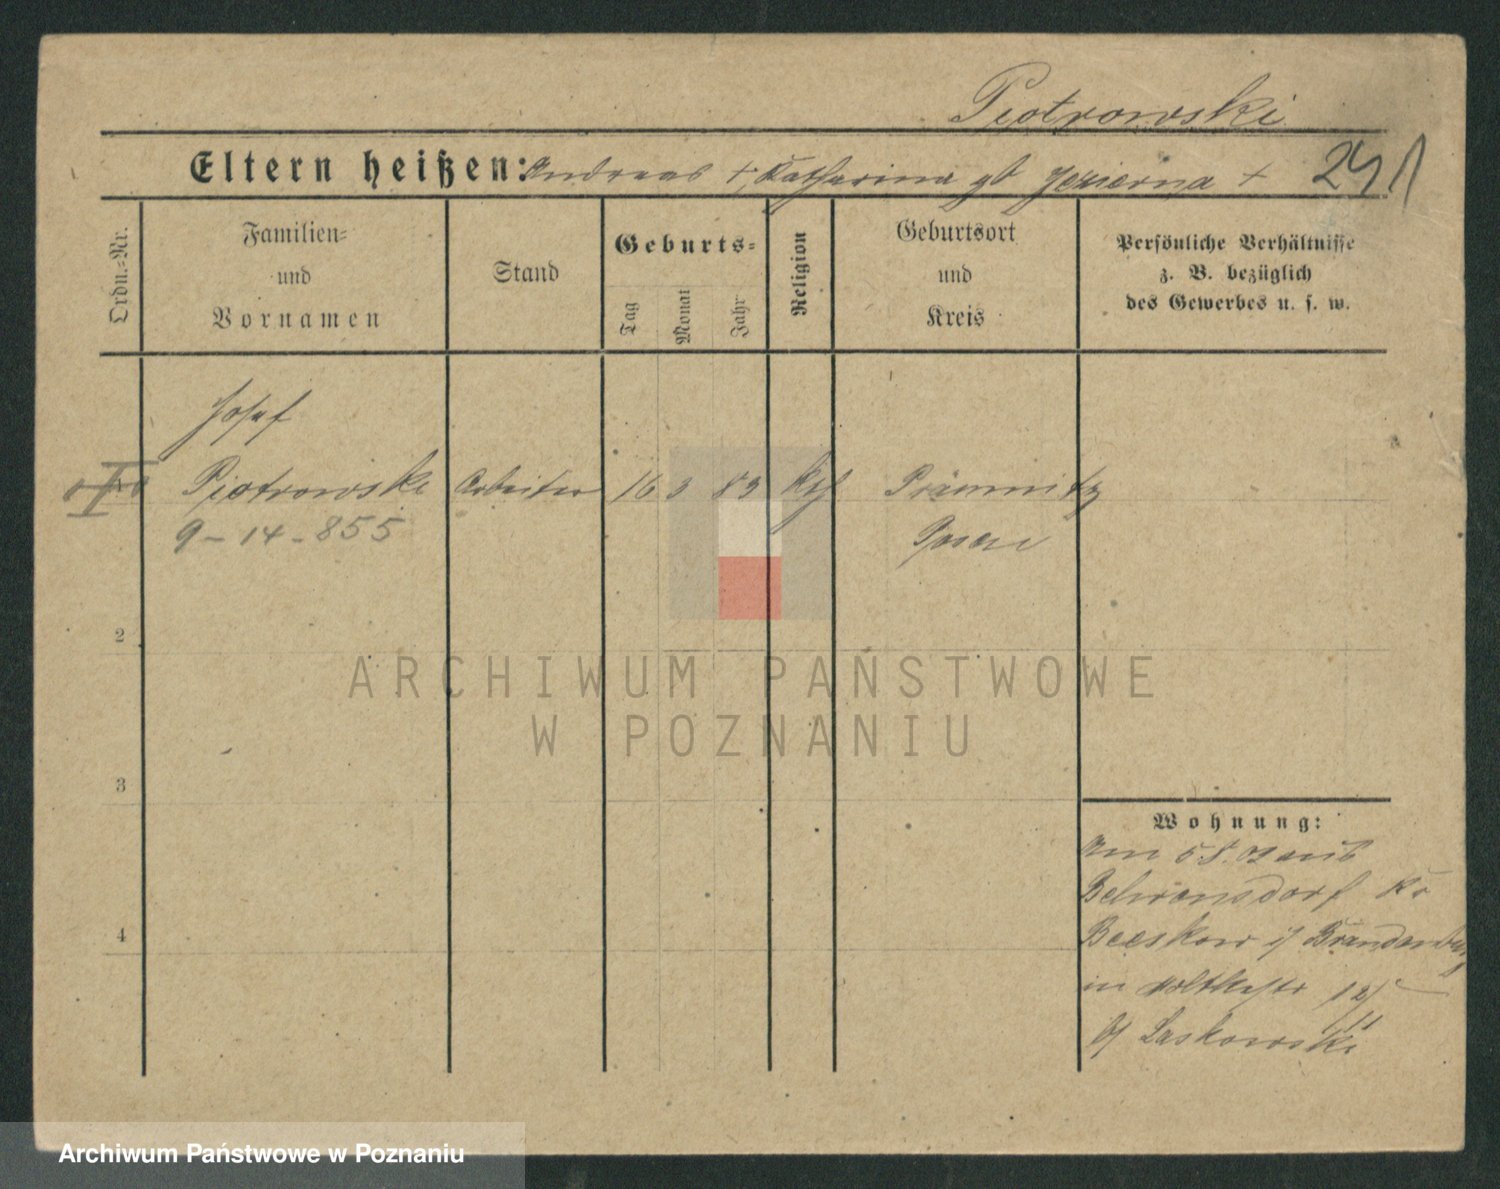 Piotrowski
Eltern heißen: Andreas +, Katharina gb Jezierna + 
Ordn.-Nr.
Familien-
und
Vornamen
Stand
Geburts-
Tag
Monat
Jahr
Religion
Geburtsort
und
Kreis
Persönliche Verhältnisse
z. B. bezüglich
des Gewerbes u. s. w.
Josef
Piotrowski Arbeiter 16 3 83 kth
9-14-855 Posen
2
3
4
Wohnung:
Am 5.8.02 aus
Behrensdorf Kr
Beeskow i/ Brandenburg
in 12/
11
Laskowski
ARCHIWUM PAŃSTWOWE
W POZNANIU
Archiwum Państwowe w Poznaniu